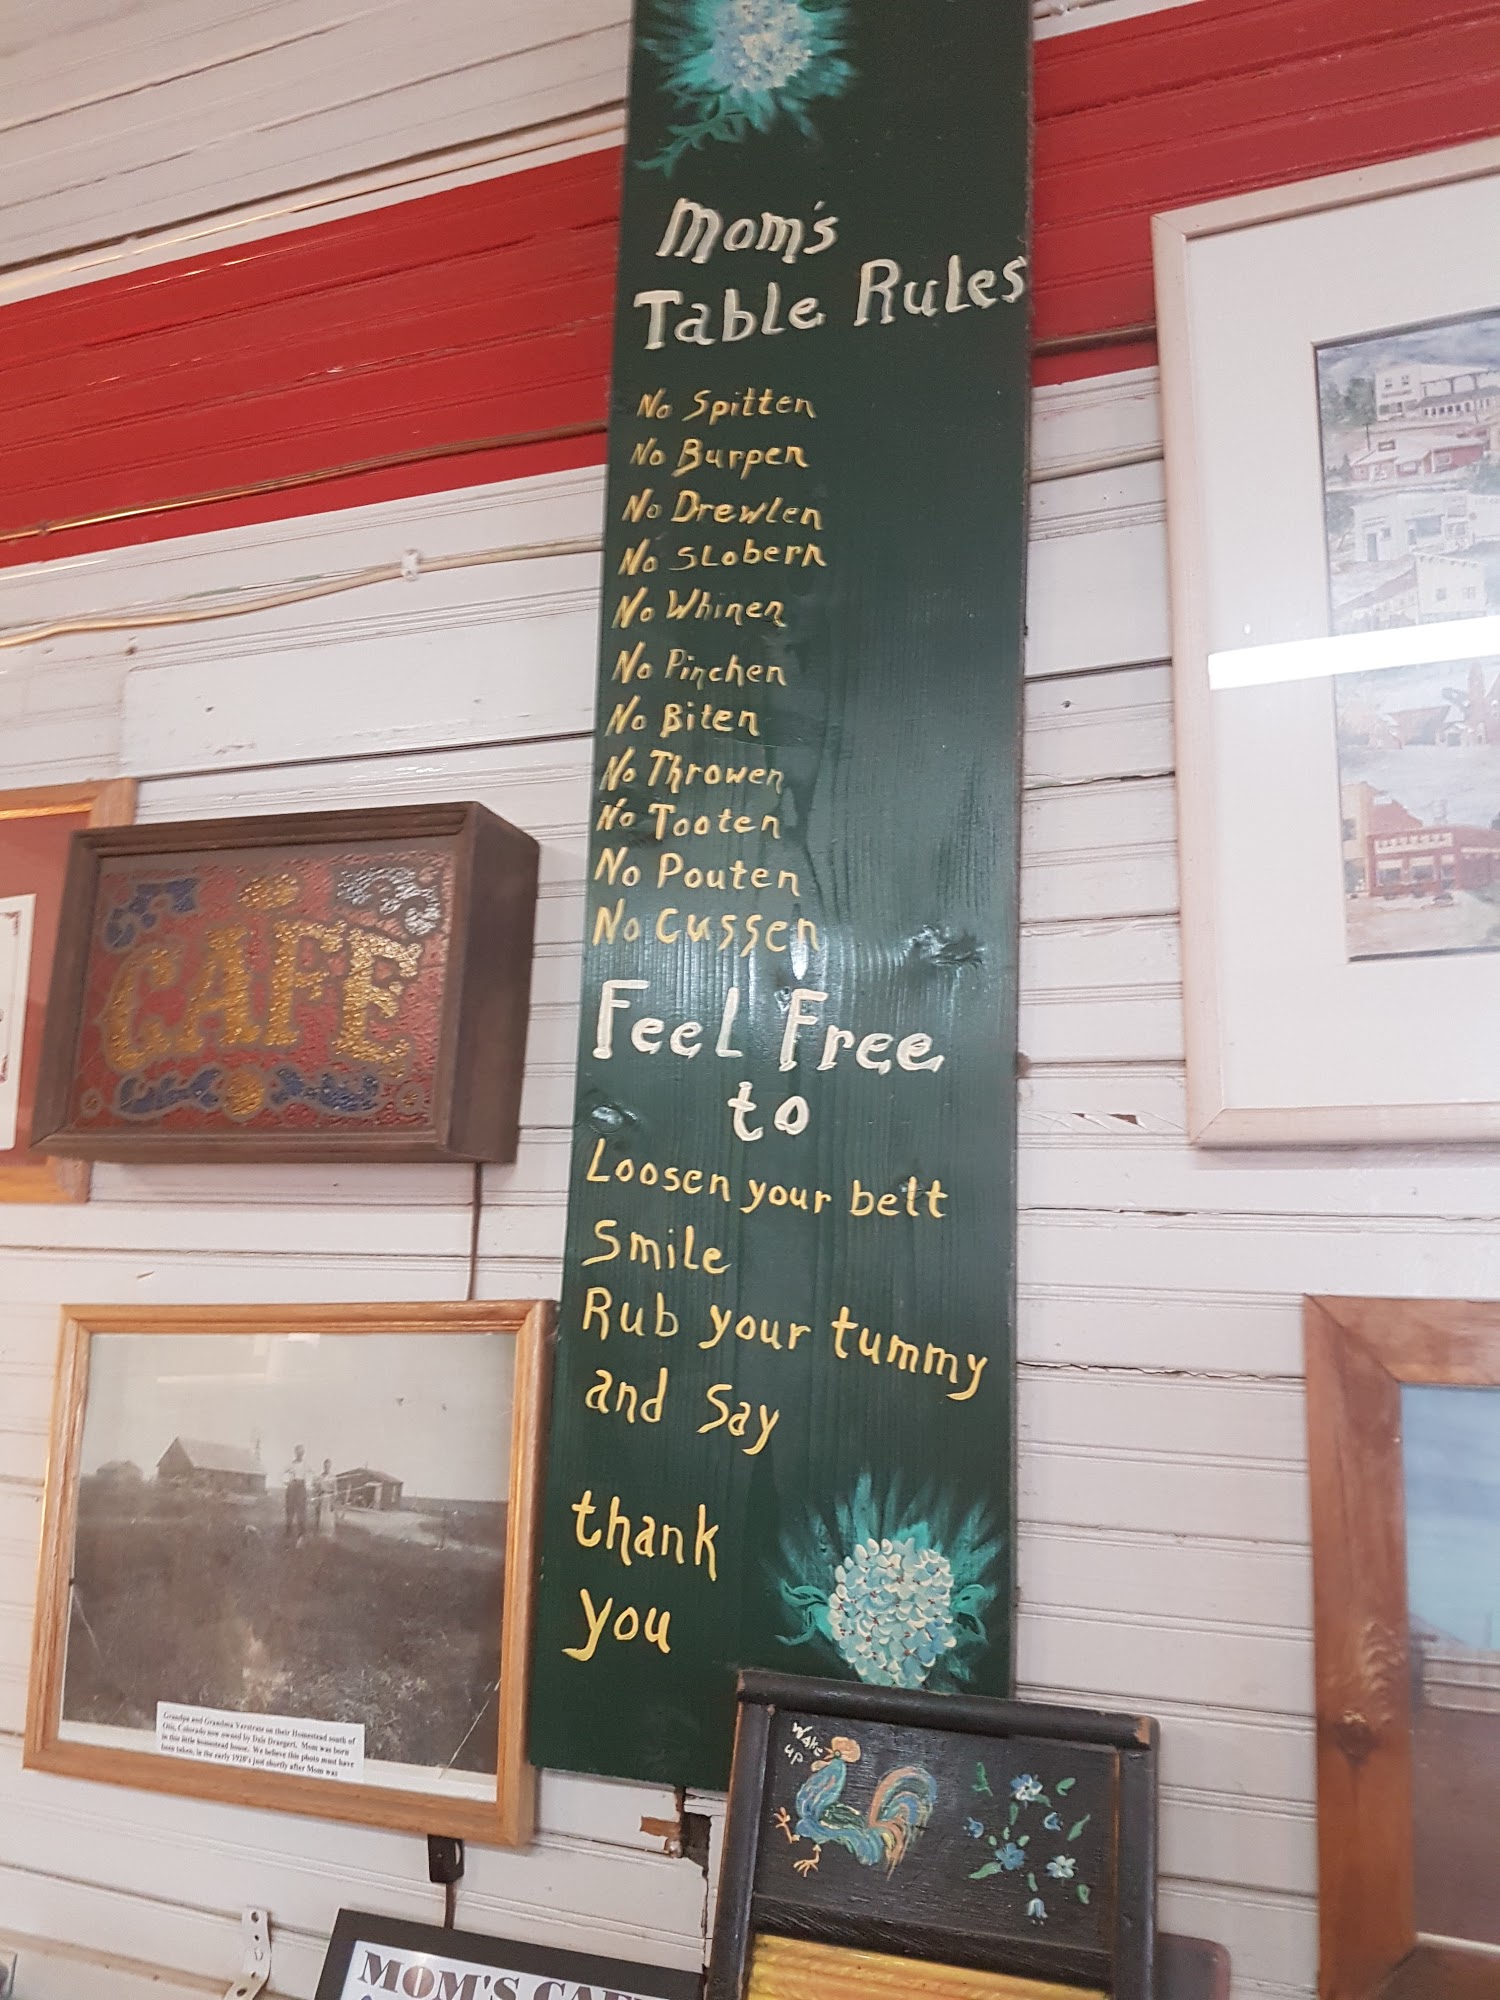 Mom's
Table Rules
No Spitten
No Burpen
No Drewlen
No SLobern
No Whinen
No Pinchen
No Biten
No Throwen
No Tooten
No Pouten
No Cussen
Feel Free
to
Loosen your belt
Smile
Rub your tummy
and Say
thank
you
CAFE
Grandpa and Grandma Verstrate on their Homestead south of
Otis, Colorado now owned by Dale Draegert. Mom was born
in this little homestead house. We believe this photo must have
been taken, in the early 1920's just shortly after Mom was
Wake
up
MOM'S CAFE